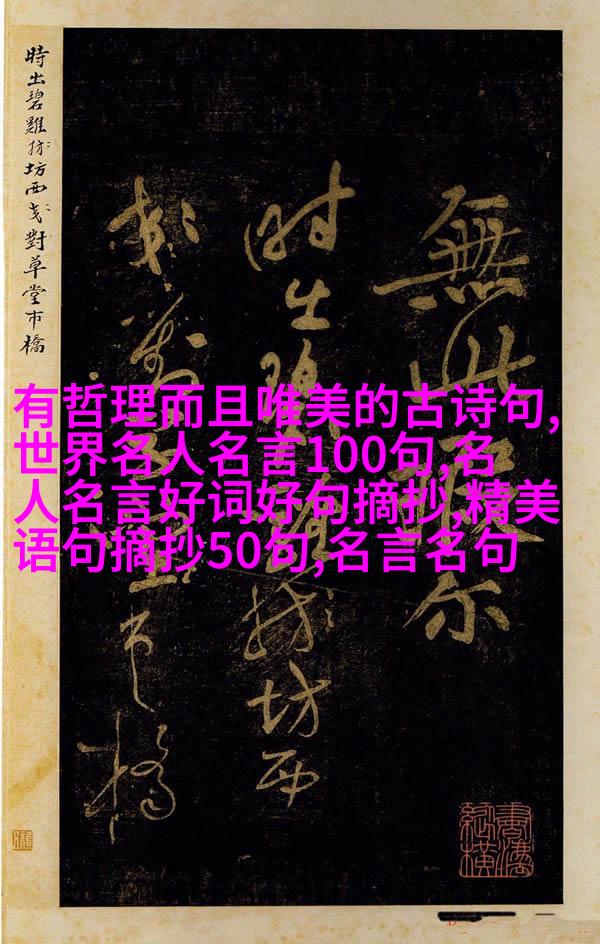 有哲理而且唯美的古诗句,
世界名人名言100句,名
人名言好词好句摘抄,精美
语句摘抄50句,名言名句
無此尔
時出碧雞坊西
草堂市橋
時出碧雞坊西對草堂市橋